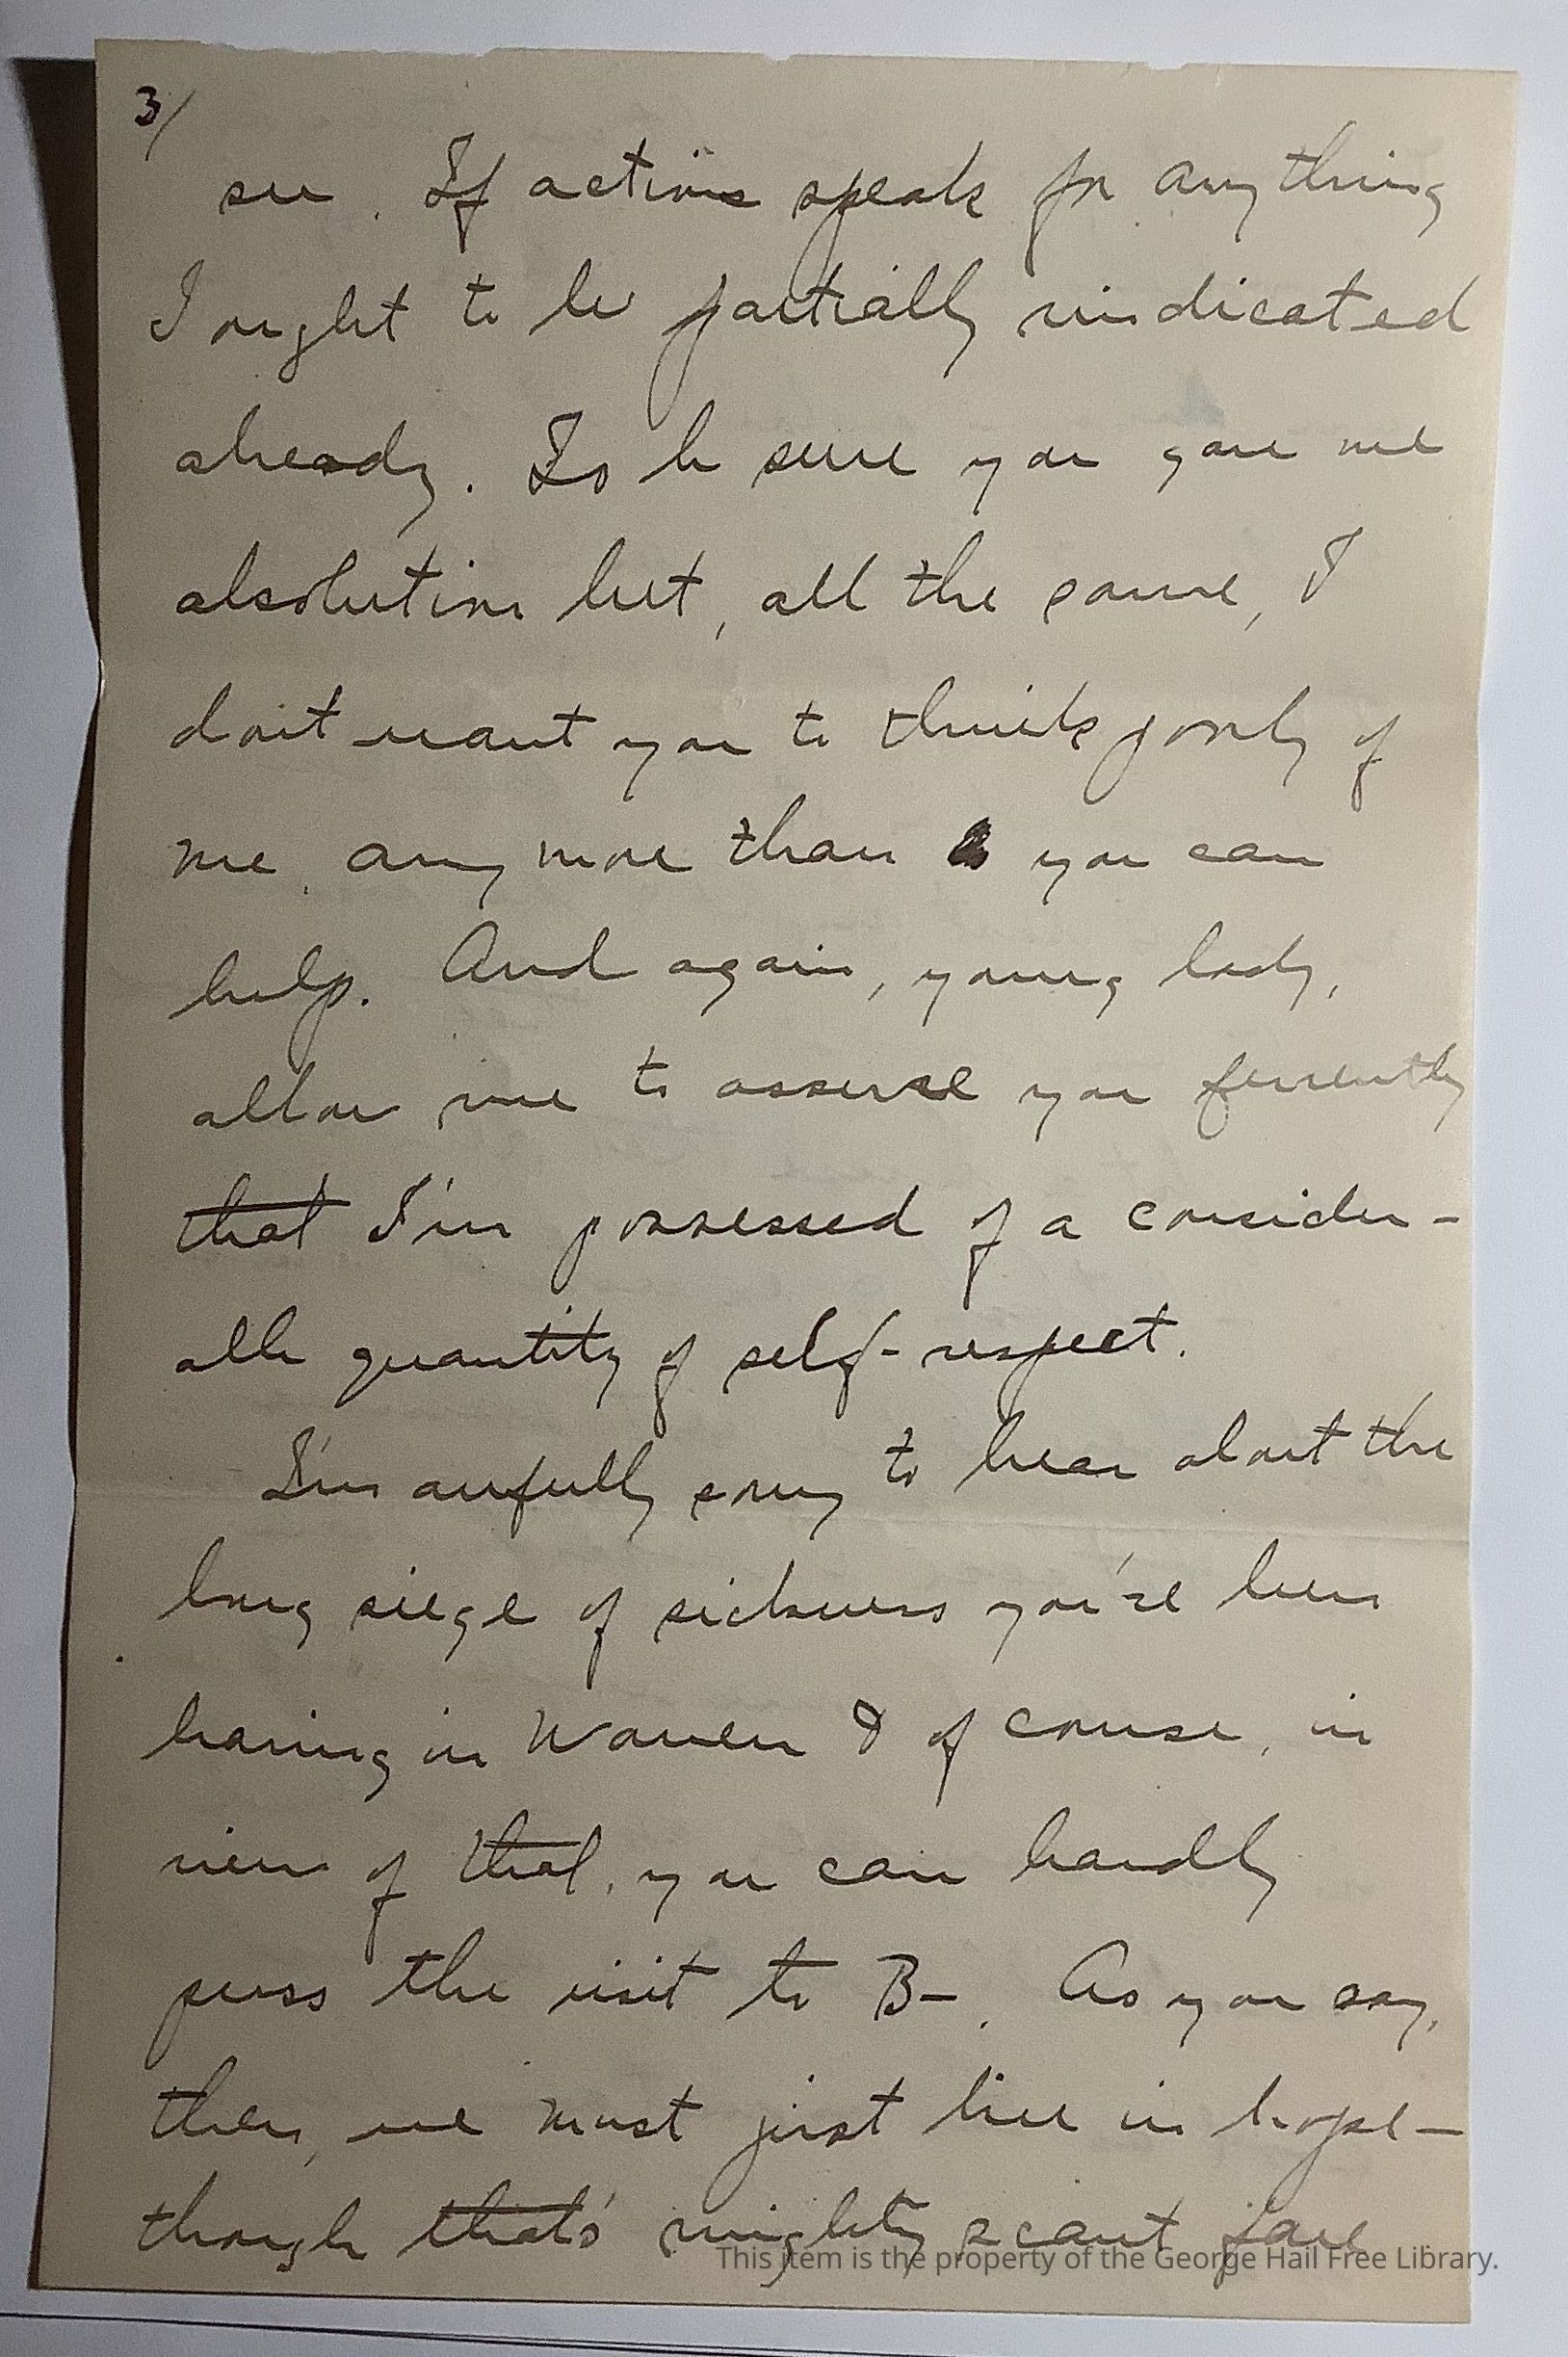 3/
see. If actions speak for anything
I ought to be partially vindicated
already. To be sure you gave me
absolution but, all the same, I
don't want you to think poorly of
me, any more than you can
help. And again, young lady,
allow me to assure you fervently
that I'm possessed of a consider-
able quantity of self-respect.
I'm awfully sorry to hear about the
long siege of sickness you've been
having in Warren & of course, in
view of that, you can hardly
press the visit to B-. As you say,
then, we must just live in hope—
though that's mighty scant fare
This item is the property of the George Hail Free Library.